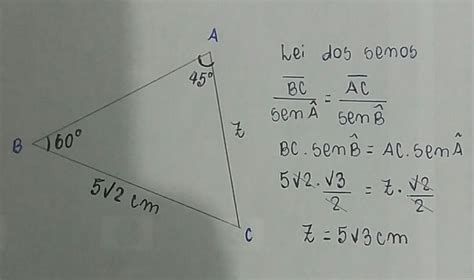 A
45°
B
60°
z
5√2 cm
C
Lei dos senos
BC/sen Â = AC/sen B̂
BC . sen B̂ = AC . sen Â
5√2 . √3/2 = z . √2/2
z = 5√3 cm